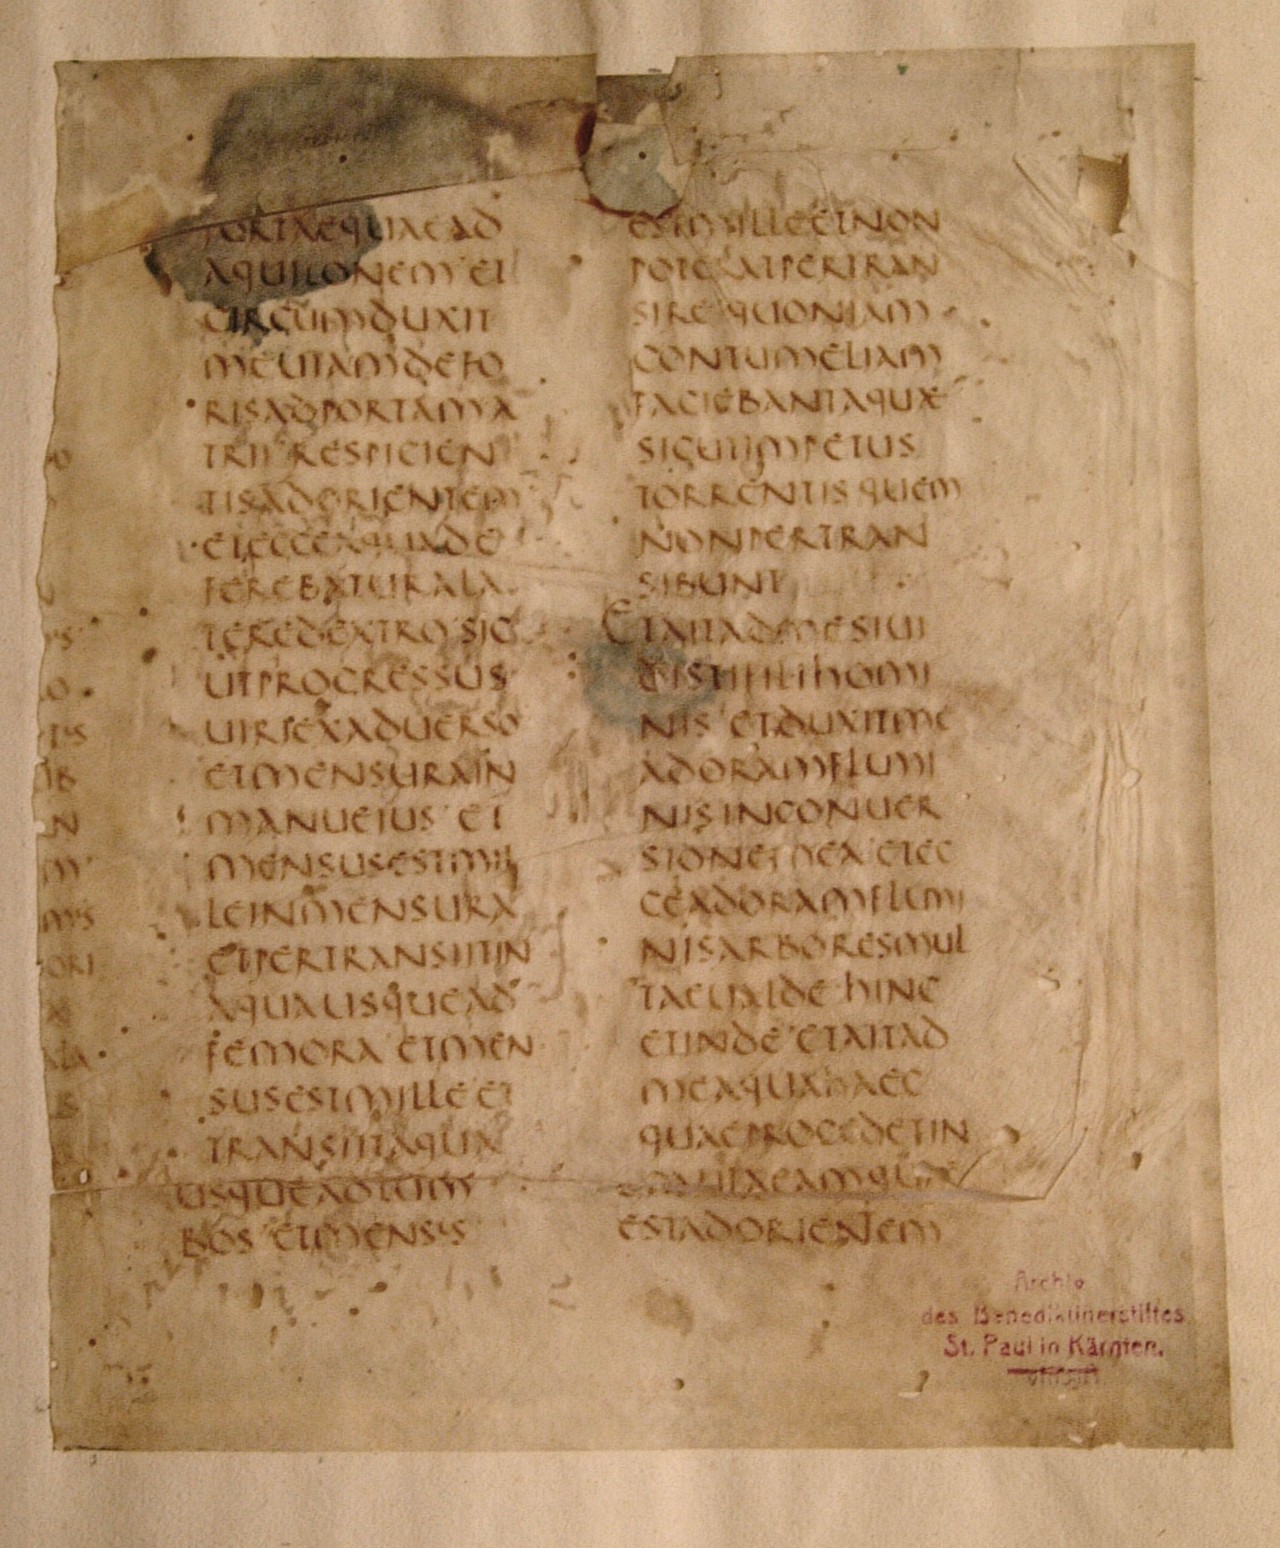 PORTAEQUAEAD
AQUILONEM ET
CIRCUMDUXIT
MEUIAMDEFO
RISADPORTAMA
TRII RESPICIEN
TISADORIENTEM
ETECCEAQUADE
FEREBATURALA
TEREDEXTRO SIC
UTPROGRESSUS
UIRIEXADUERSO
ETMENSURAIN
MANUEIUS ET
MENSUSESTMIL
LEINMENSURA
ETPERTRANSIITIN
AQUAUSQUEAD
FEMORA ETMEN
SUSESTMILLE ET
TRANSIITAQUA
USQUEADLUM
BOS ETMENSUS
ESTMILLEETNON
POTERATPERTRAN
SIRE QUONIAM
CONTUMELIAM
FACIEBANTAQUAE
SICUTIMPETUS
TORRENTIS QUEM
NONPERTRAN
SIBUNT
ETAITADMESIUI
DISTIFILIHOMI
NIS ETDUXITME
ADORAMFLUMI
NISINCONUER
SIONE MEA ETEC
CEADORAMFLUMI
NISARBORESMUL
TAEUALDE HINC
ETINDE ETAITAD
MEAQUAHAEC
QUAEPROCEDETIN
AEAMQUAE
ESTADORIENTEM
Archiv
des Benediktinerstiftes
St. Paul in Kärnten.